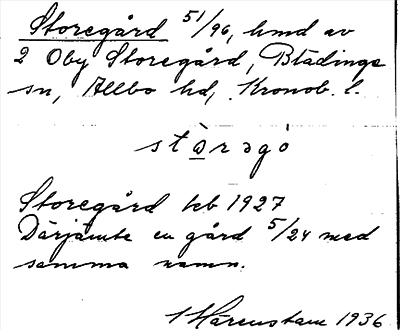 Storegård 51/96, hmd av
2 Oby Storegård, Blädinge
sn, Allbo hd, Kronob. l.
stòrəgó
Storegård teb 1927
Därjämte en gård 5/24 med
samma namn.
Härenstam 1936